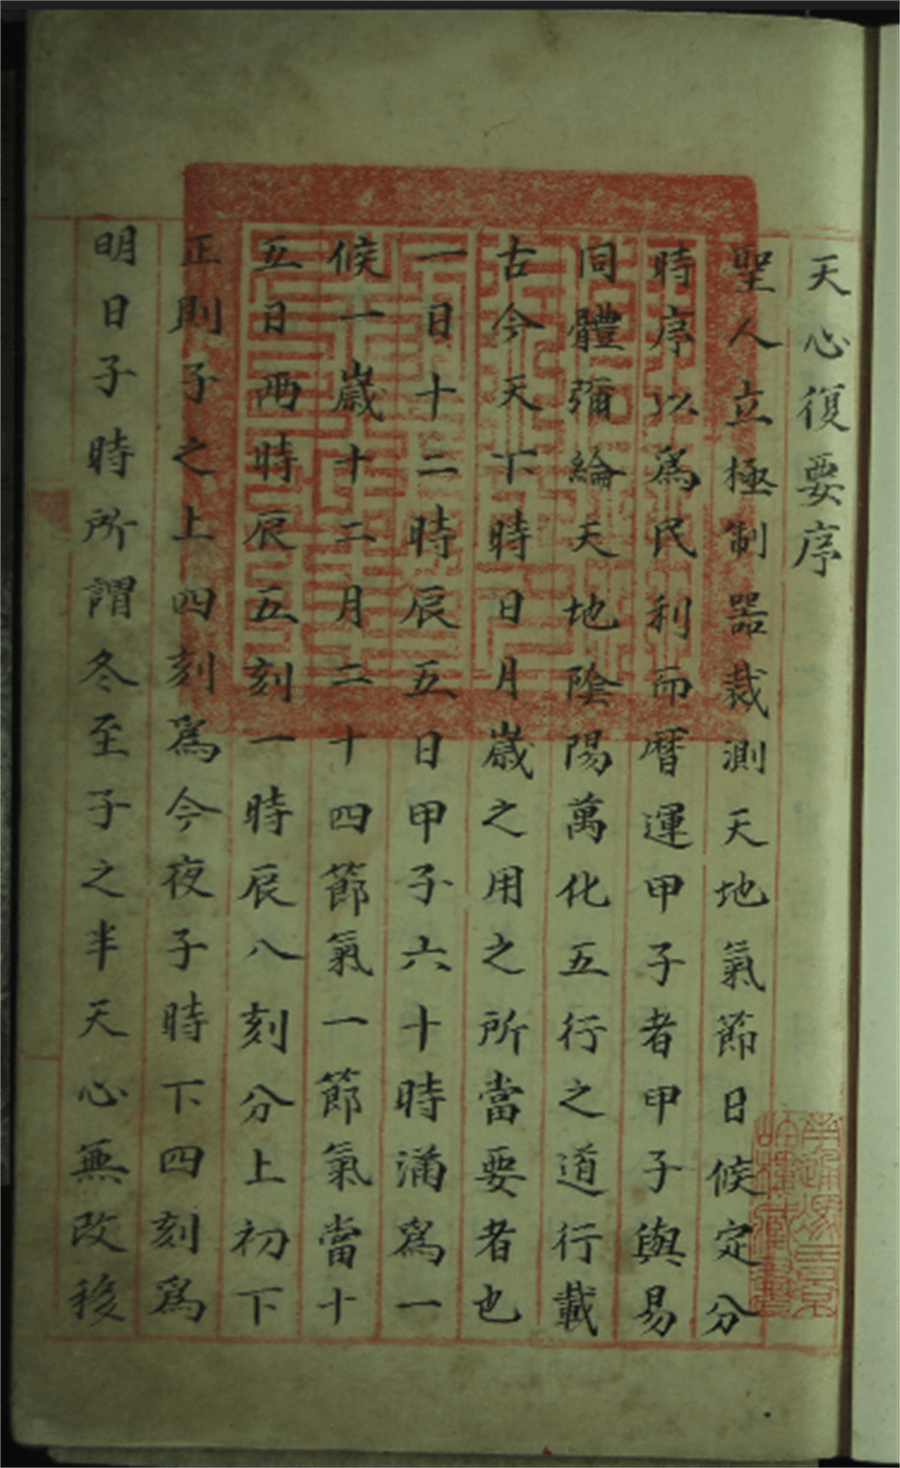 天心復要序
聖人立極制器裁測天地氣節日候定分
時序以為民利而暦運甲子者甲子與易
同體彌綸天地陰陽萬化五行之道行載
古今天下時日月歲之用之所當要者也
一日十二時辰五日甲子六十時滿為一
候一歲十二月二十四節氣一節氣當十
五日兩時辰五刻一時辰八刻分上初下
正則子之上四刻為今夜子時下四刻為
明日子時所謂冬至子之半天心無改移